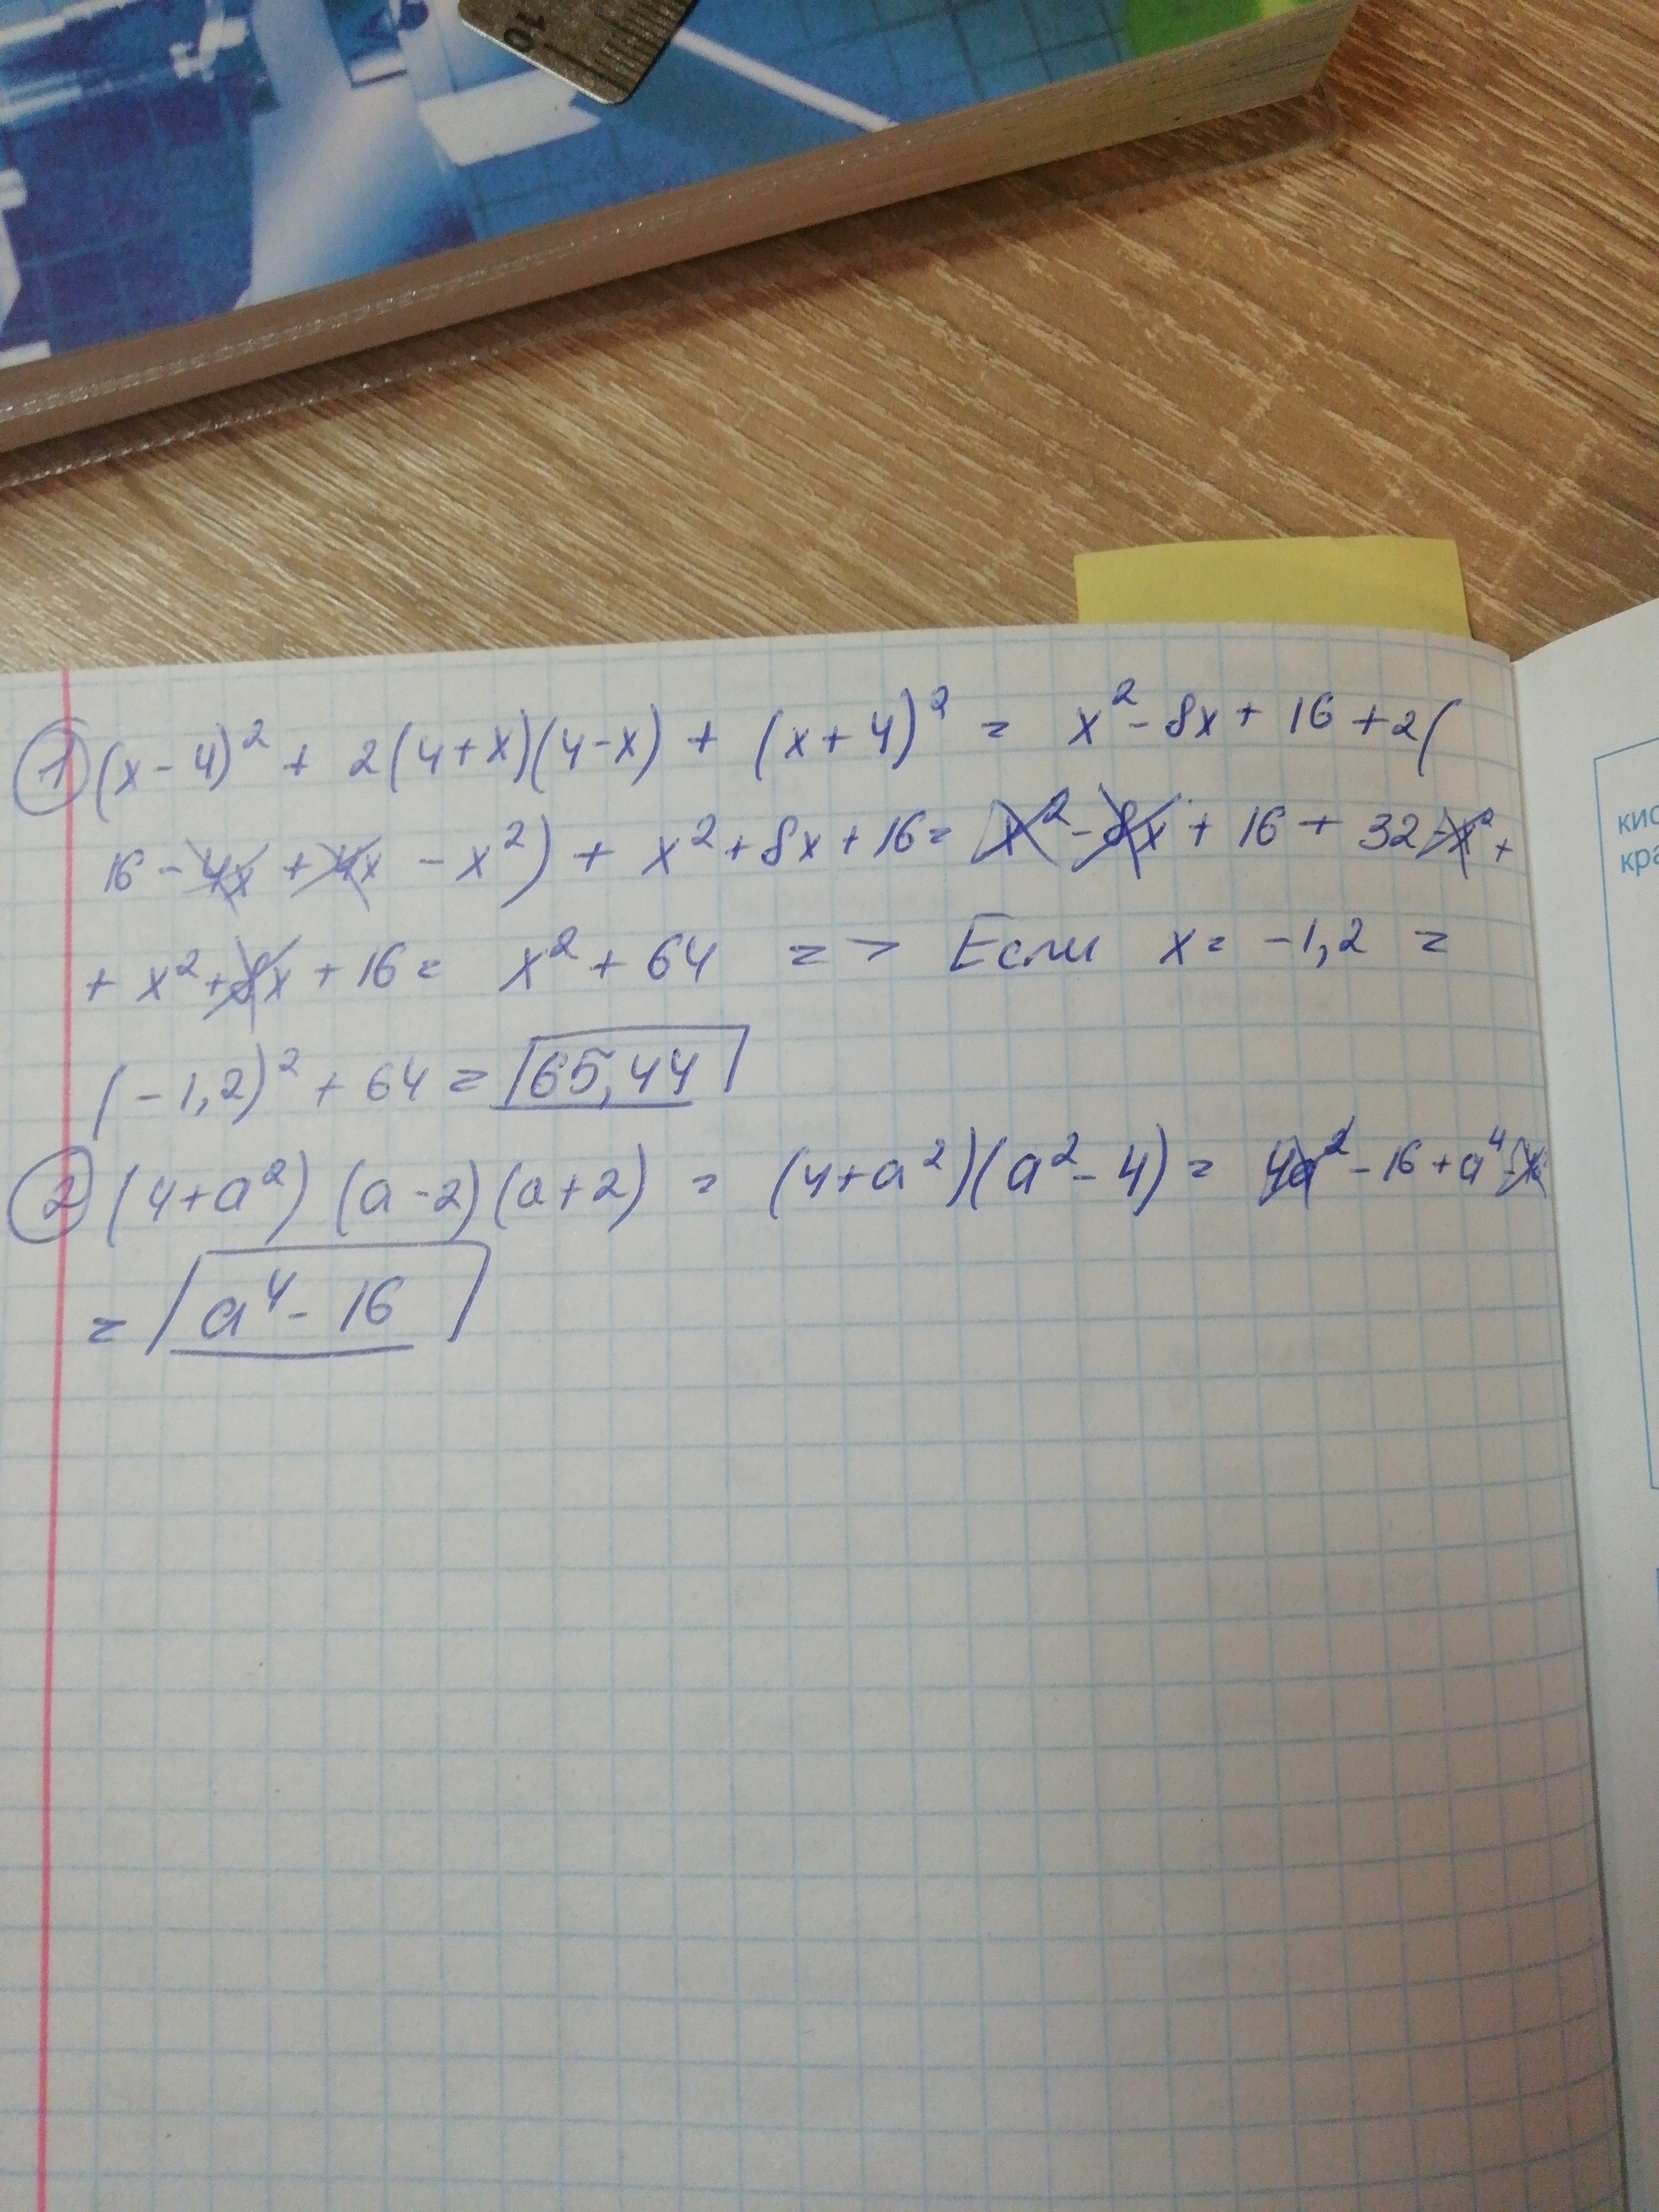 10
① (x-4)² + 2(4+x)(4-x) + (x+4)² = x² - 8x + 16 + 2(
16 - 4x + 4x - x²) + x² + 8x + 16 = x² - 8x + 16 + 32 - x² +
+ x² + 8x + 16 = x² + 64 => Если x = -1,2 =
(-1,2)² + 64 = 65,44
② (4+a²)(a-2)(a+2) = (4+a²)(a²-4) = 4a² - 16 + a⁴
= a⁴ - 16
кис
кра